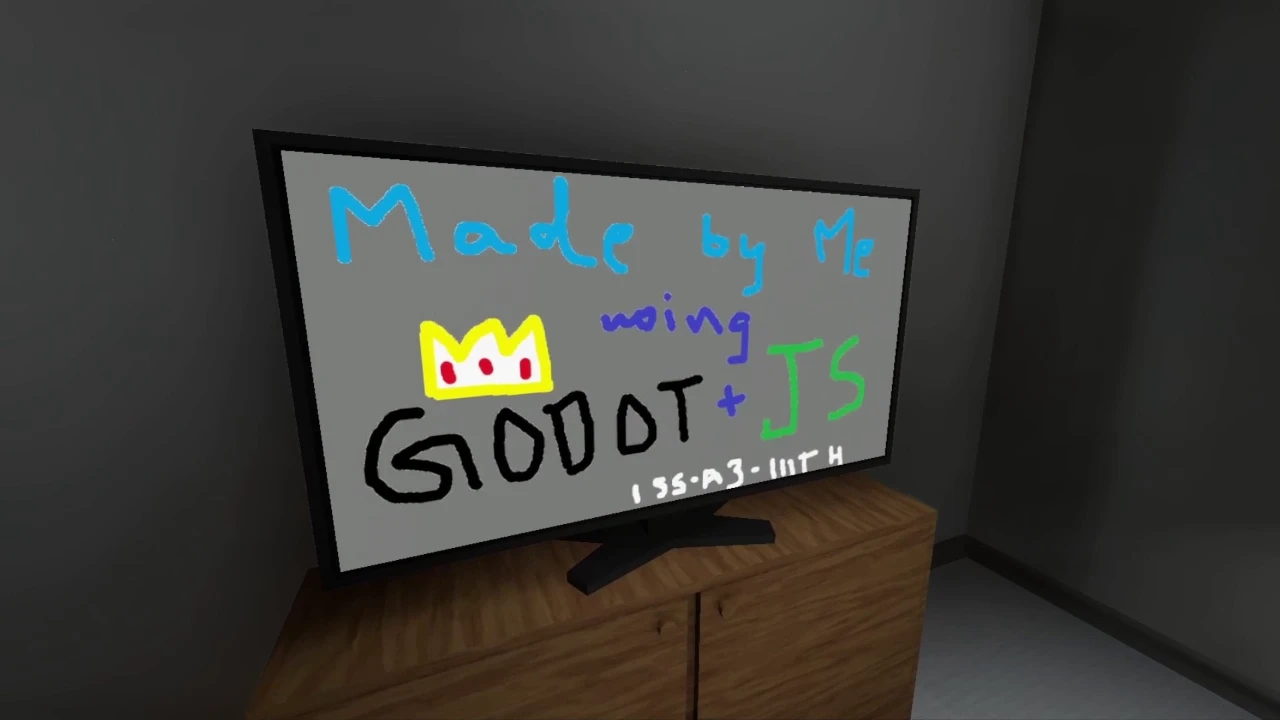 Made by Me
using
GODOT + JS
ISS-A3-IIITH